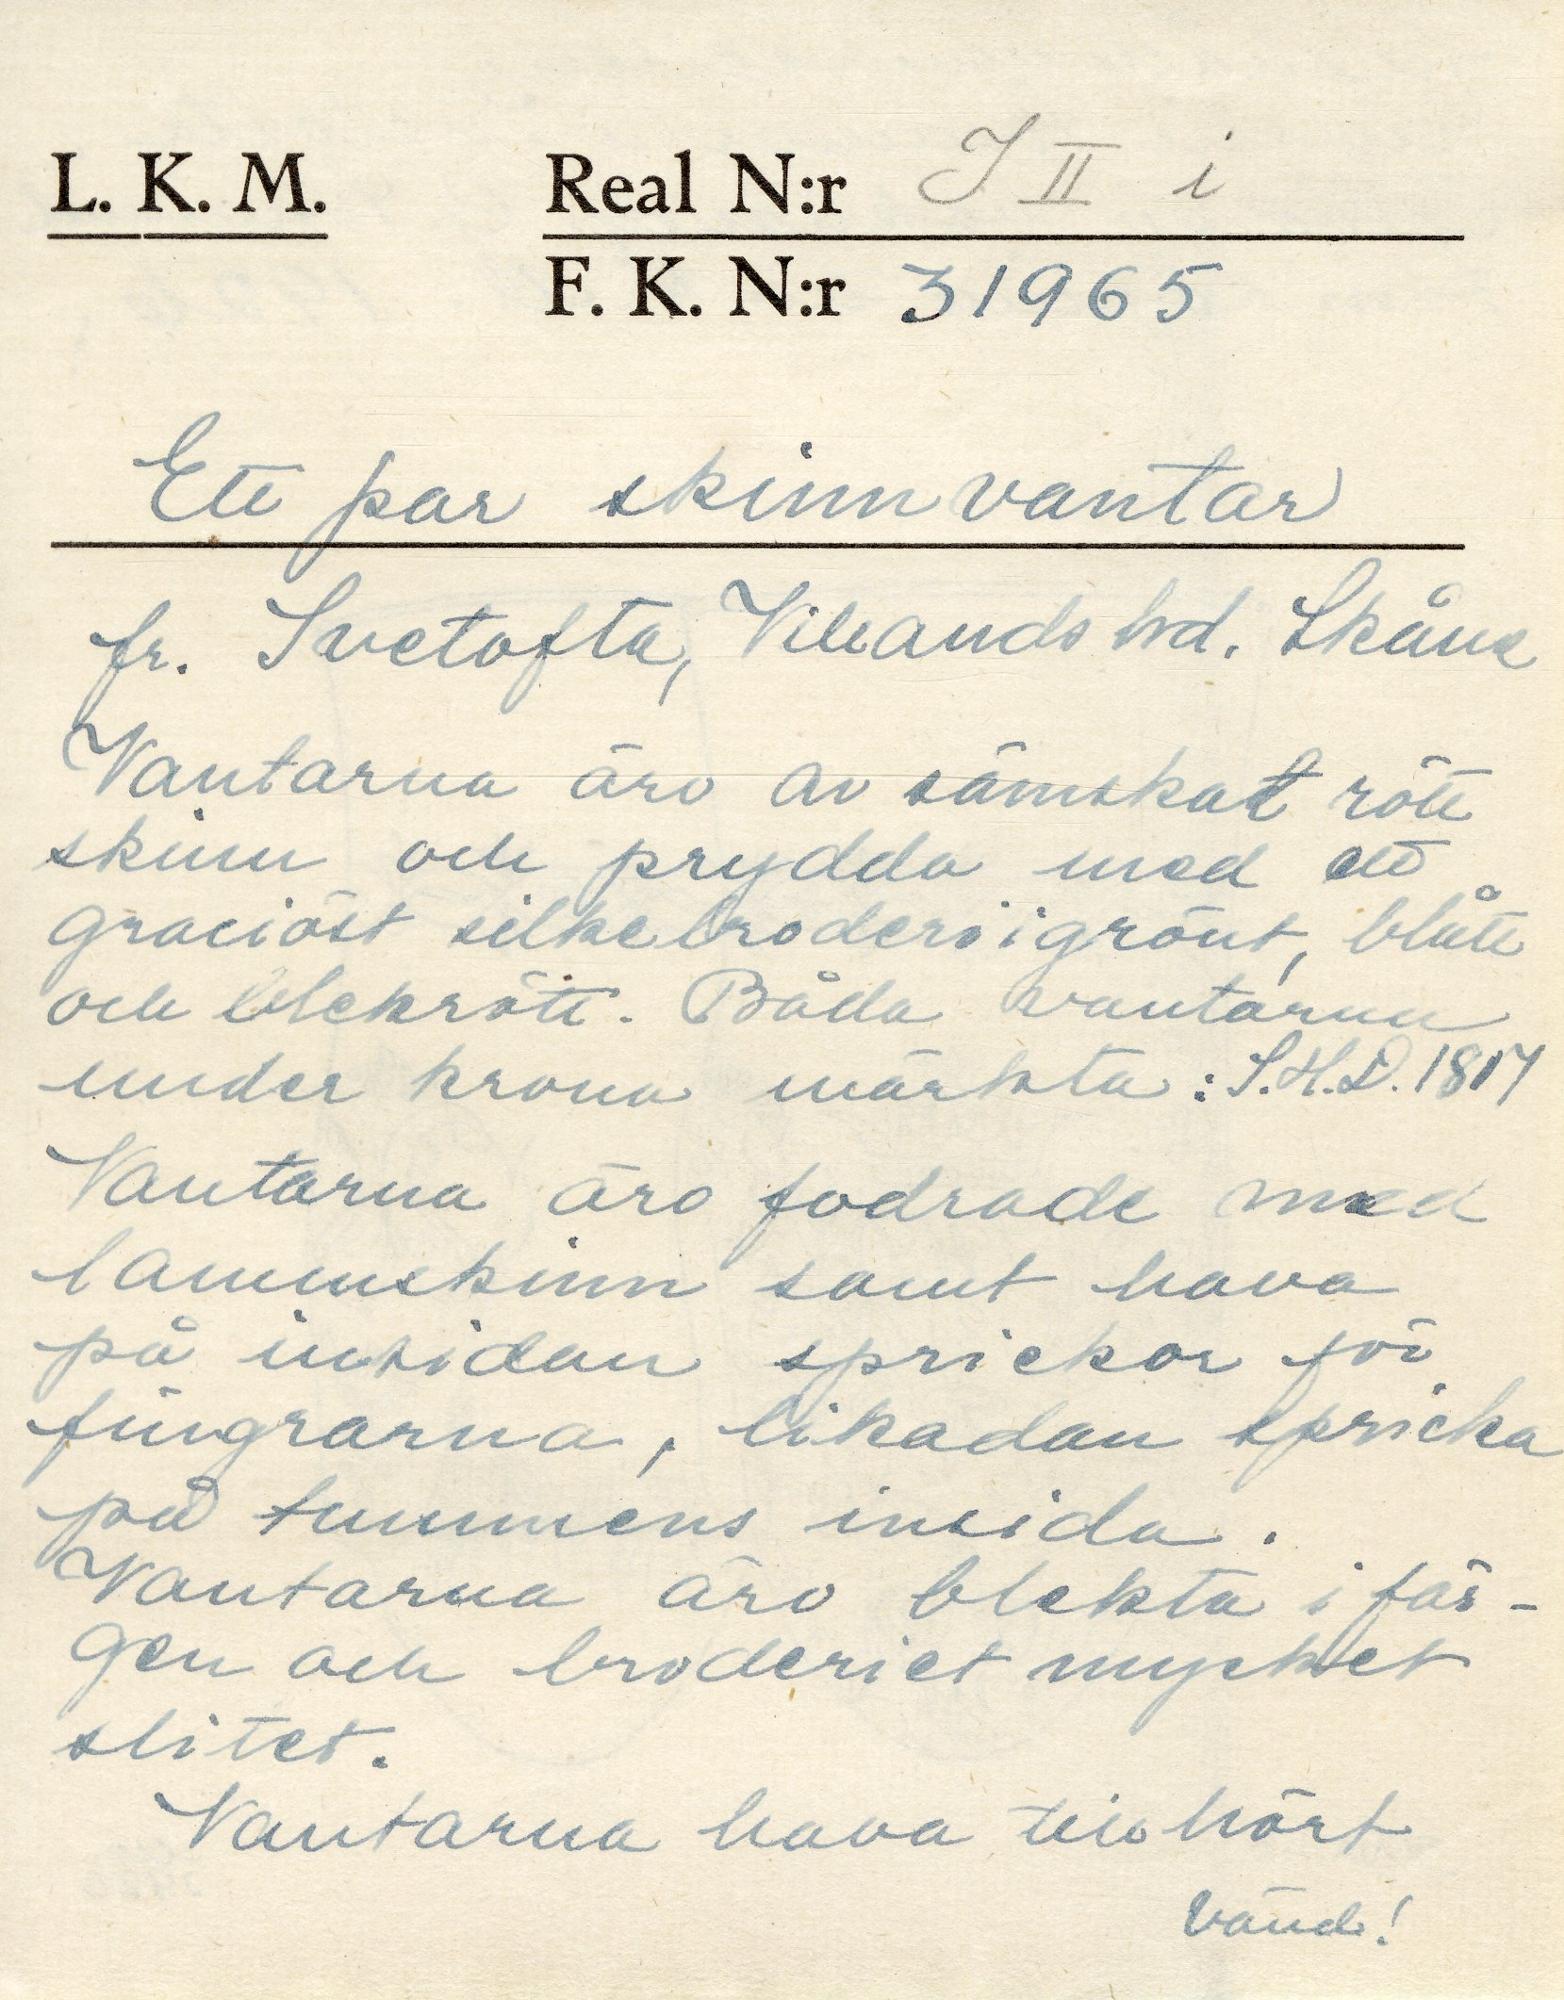 L. K. M.
Real N:r I II i
F. K. N:r 31965
Ett par skinnvantar
fr. Ivetofta, Villands hd. Skåne
Vantarna äro av sämskat rött
skinn och prydda med ett
graciöst silkebroderi i grönt, blått
och blekrött. Båda vantarna
under krona märkta: S.H.D. 1817
Vantarna äro fodrade med
lammskinn samt hava
på insidan sprickor för
fingrarna, likadan spricka
på tummens insida.
Vantarna äro blekta i fär-
gen och broderiet mycket
slitet.
Vantarna hava tillhört
Vänd!